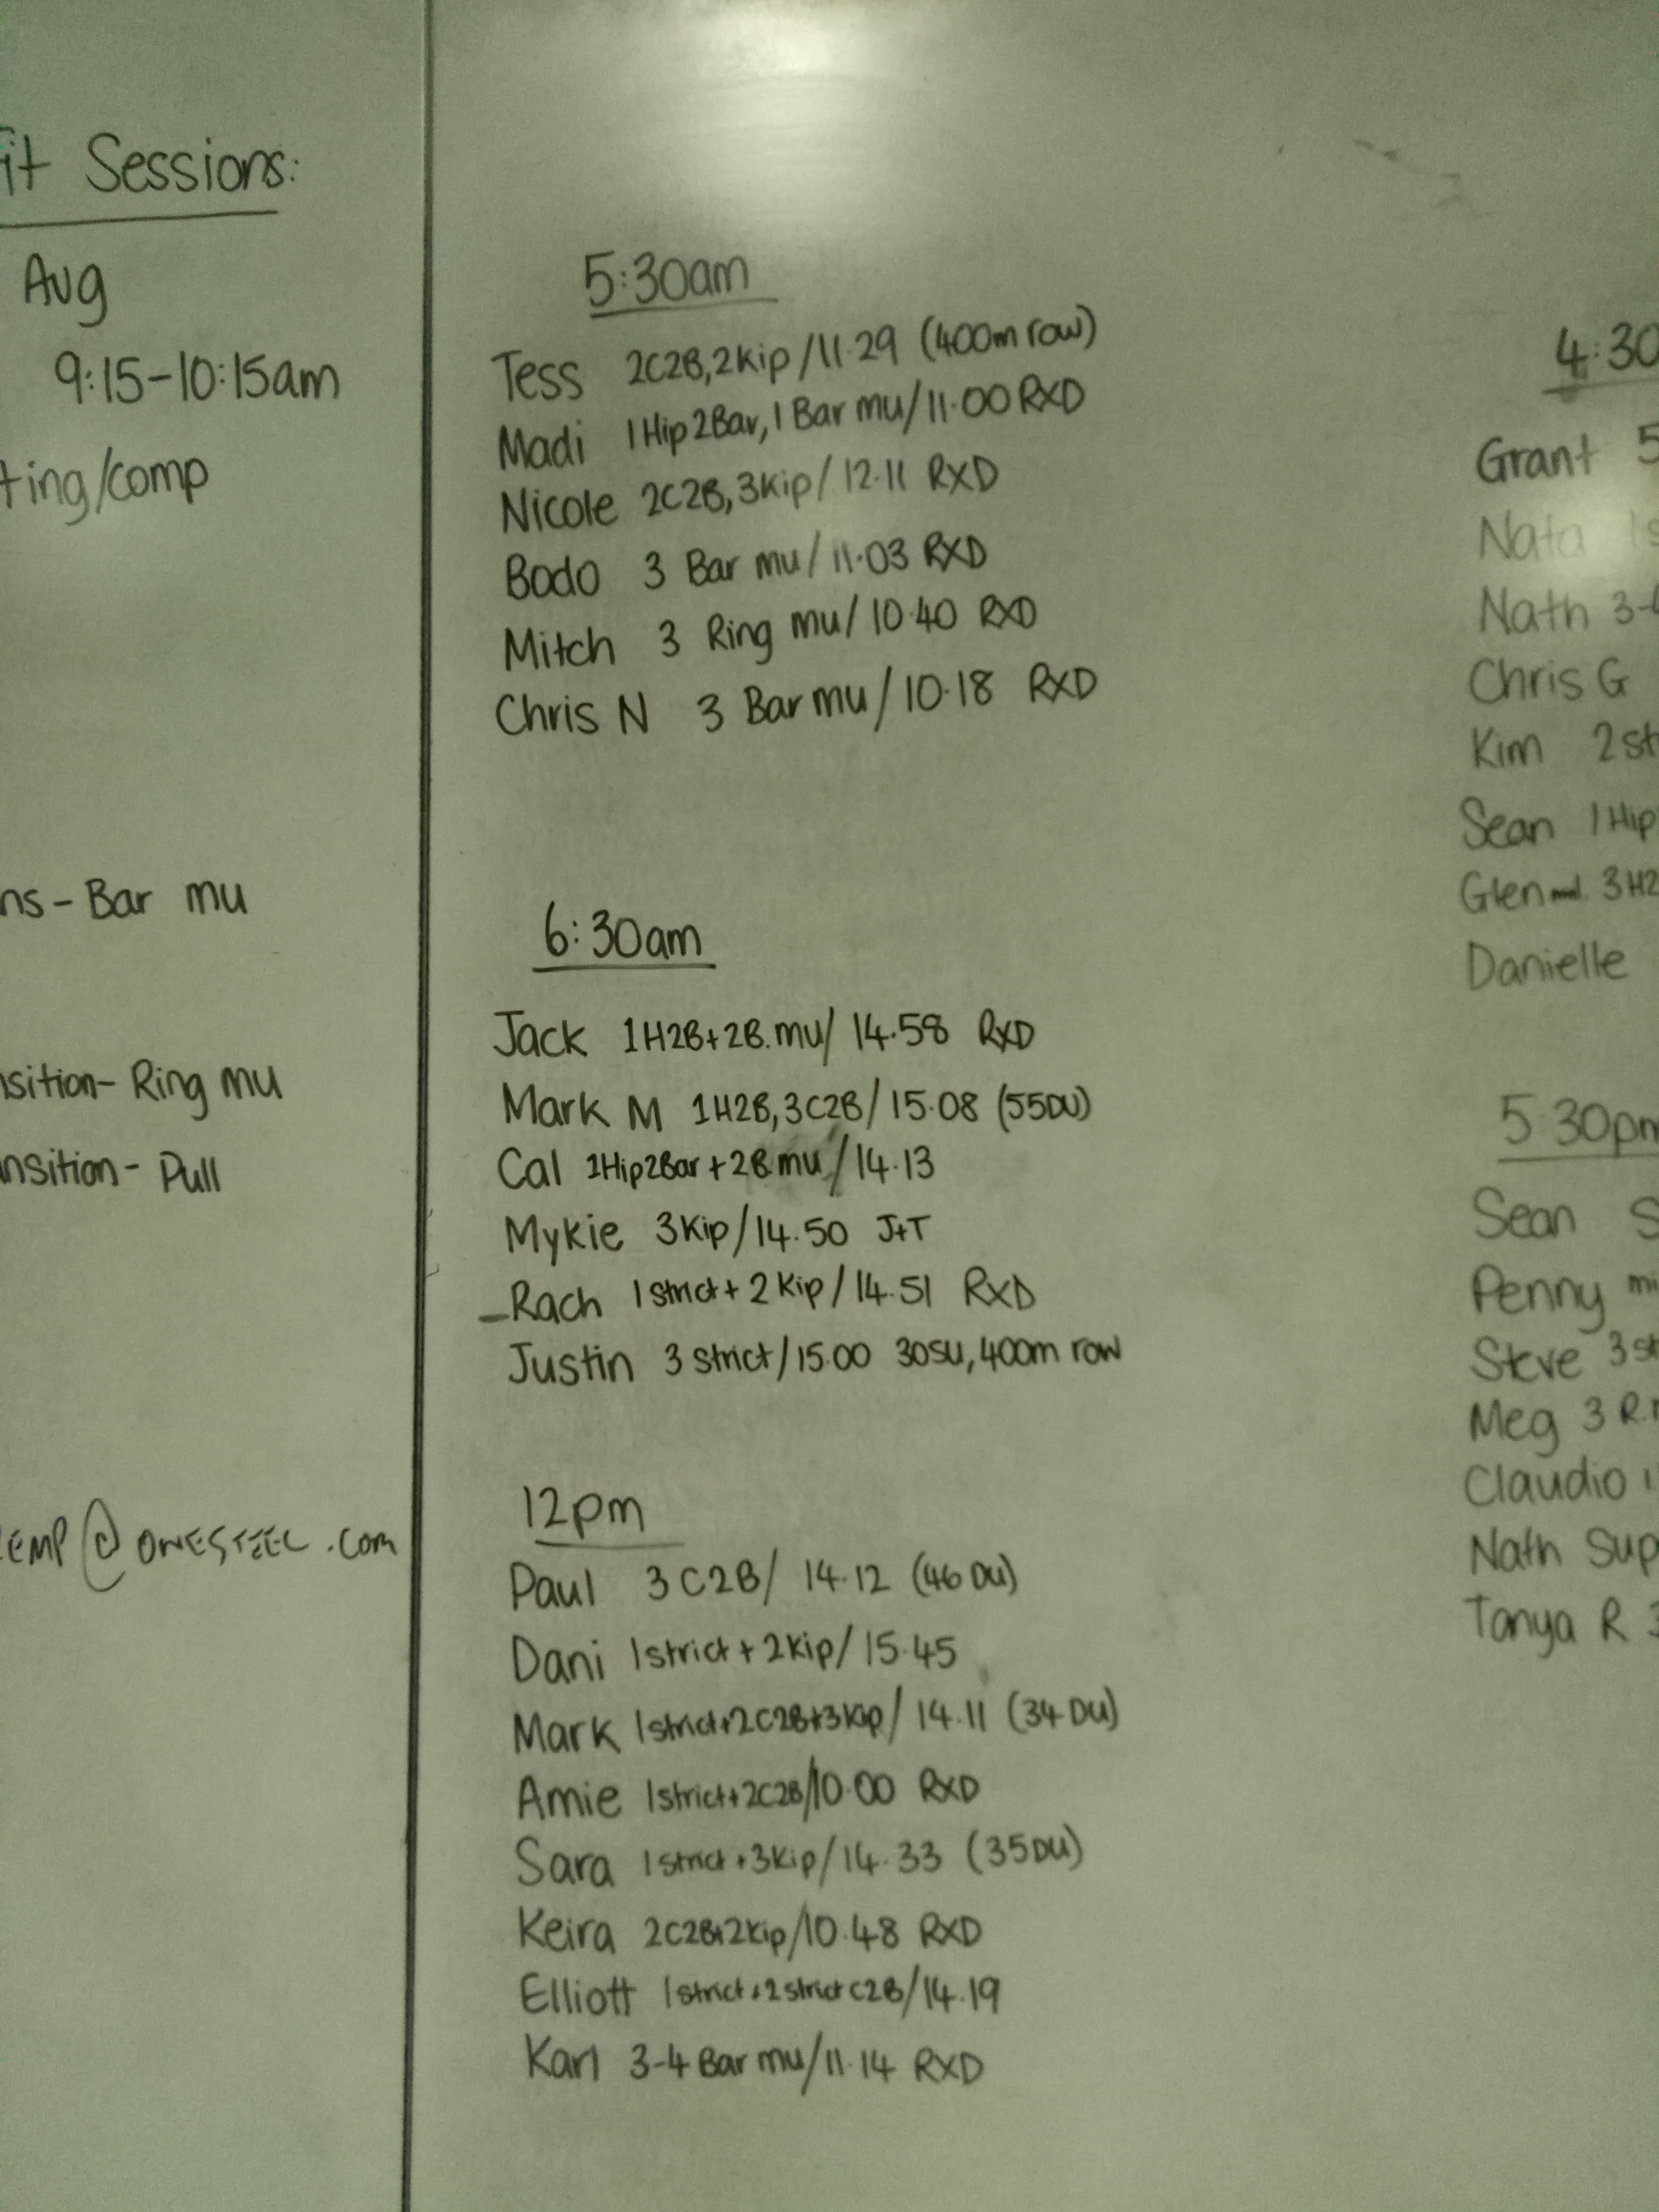 it Sessions:
Aug
9:15-10:15am
ting/comp
ns- Bar mu
nsition- Ring mu
nsition- Pull
EMP@ONESTEEL.com
5:30am
Tess 2C2B,2Kip/11.29 (400m row)
Madi 1Hip2Bar,1 Bar mu/11.00 RXD
Nicole 2C2B,3Kip/12.11 RXD
Bodo 3 Bar mu/11.03 RXD
Mitch 3 Ring mu/10.40 RXD
Chris N 3 Bar mu/10.18 RXD
6:30am
Jack 1H2B+2B.mu/14.58 RXD
Mark M 1H2B,3C2B/15.08 (55DU)
Cal 1Hip2Bar+2B.mu/14.13
Mykie 3Kip/14.50 J+T
-Rach 1 strict+2 Kip/14.51 RXD
Justin 3 strict/15.00 30SU,400m row
12pm
Paul 3 C2B/ 14.12 (46 DU)
Dani 1strict+2Kip/15.45
Mark 1strict+2C2B+3Kip/14.11 (34 DU)
Amie 1strict+2C2B/10.00 RXD
Sara 1strict+3Kip/14.33 (35DU)
Keira 2C2B+2Kip/10.48 RXD
Elliott 1strict+2strict C2B/14.19
Karl 3-4 Bar mu/11.14 RXD
4:30
Grant 5
Nata 1s
Nath 3-
Chris G
Kim 2st
Sean 1 Hip
Glen 3H2
Danielle
5:30pm
Sean S
Penny mi
Steve 3 st
Meg 3 R.
Claudio 1
Nath Sup
Tanya R 3